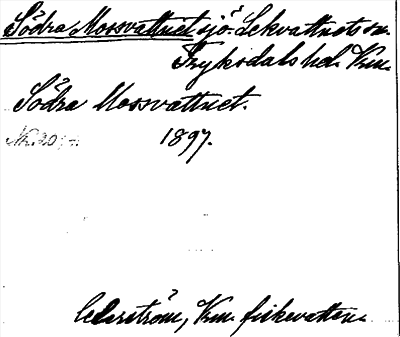 Södra Mossvattnet sjö. Lekvattnets sn.
Fryksdals hd. Vrm.
Södra Mossvattnet.
1897.
Cederström, Vrm. fiskevatten.